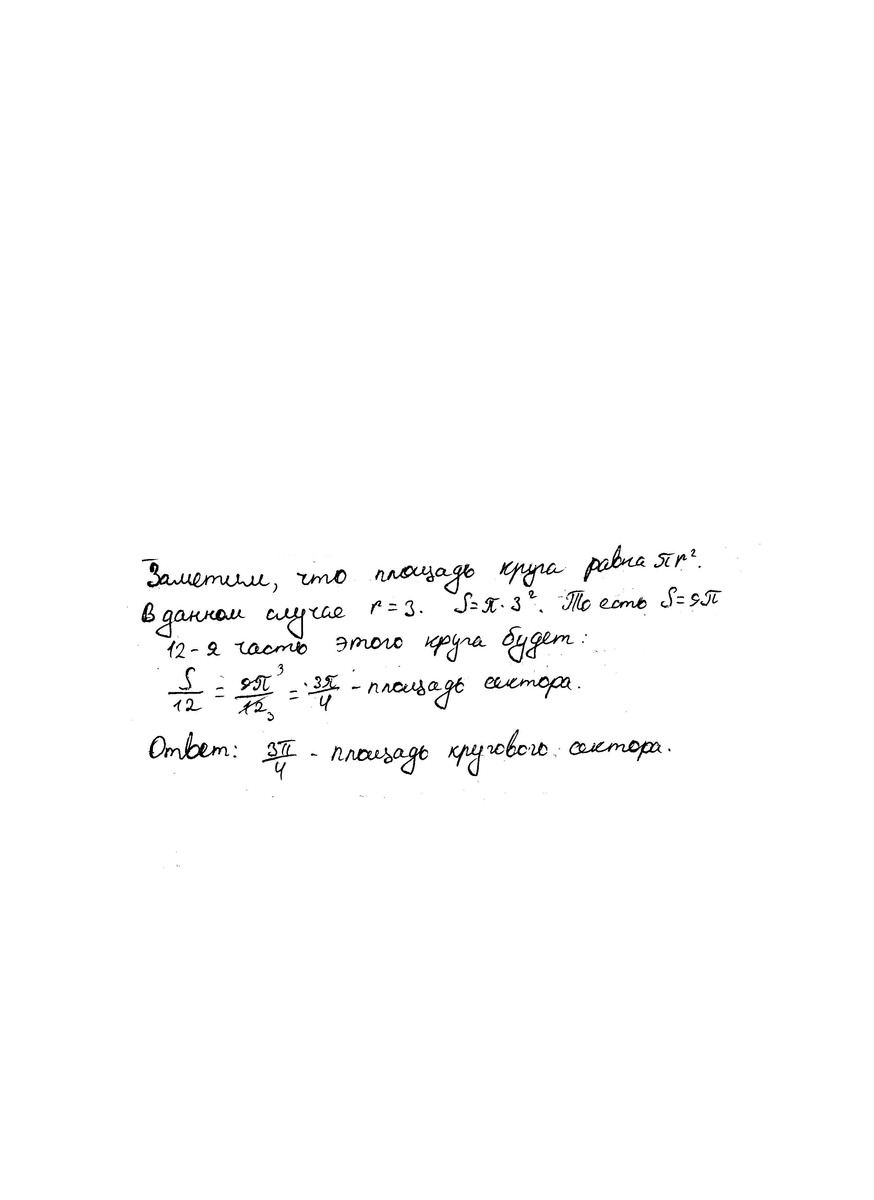 Заметим, что площадь круга равна πr².
В данном случае r = 3. S = π · 3². То есть S = 9π
12-я часть этого круга будет:
S/12 = 9π³/12₃ = 3π/4 - площадь сектора.
Ответ: 3π/4 - площадь кругового сектора.